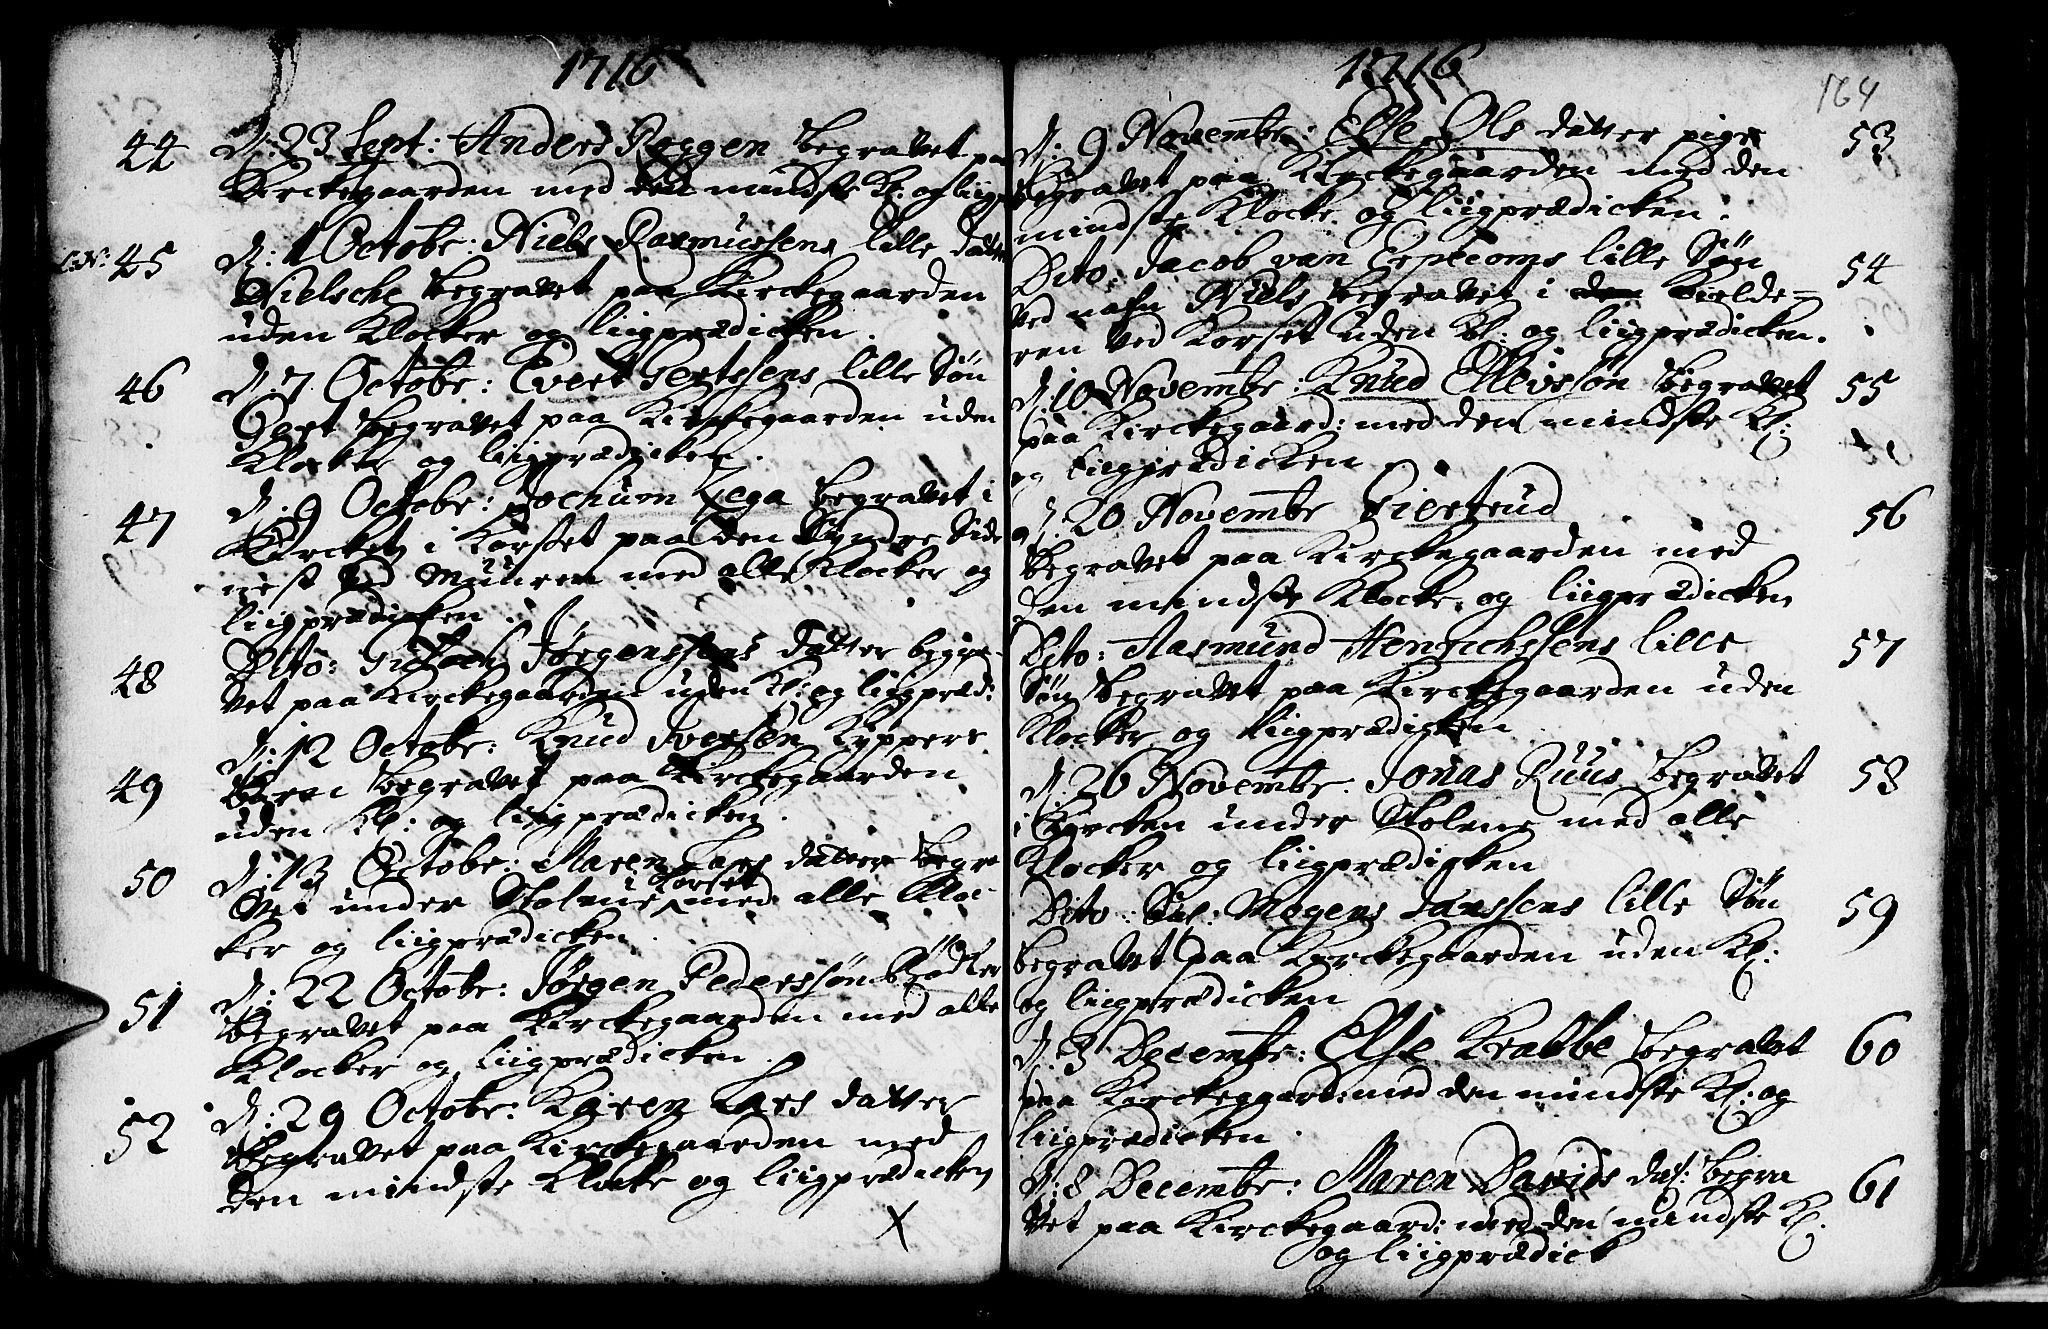 1716
44 d. 23 Sept: Anders Roggen begravet paa
Kirckegaarden med den mindste Kl: og liigp
L.N: 45 d: 1 Octobr: Niels Rasmussens lille datter
Nielsche begravet paa Kirckegaarden
uden Klocker og liigprædicken.
46 d. 7 Octobr: Evert Gertssens lille Søn
Gert begravet paa Kirckegaarden uden
Klocker og liigprædicken.
47 d. 9 Octobr: Jochum Lega begravet i
Kircken i Korsset paa den Syndre Side
nest ved Muuren med alle Klocker og
liigprædicken.
48 Dito: Jørgenssens datter begra-
vet paa Kirckegaarden uden Kl: og liigpræd:
49 d: 12 Octobr: Knud Iversen Kyppers
Barn begravet paa Kirckegaarden
uden Kl: og liigprædicken.
50 d: 13 Octobr: Maren Lars datter begra
vet under Stolene Korset med alle Kloc-
ker og liigprædicken.
51 d: 22 Octobr: Jørgen Pederssøn Bødker
begravet paa Kirckegaarden med alle
Klocker og liigprædicken.
52 d: 29 Octobr: Karen Lars datter
begravet paa Kirckegaarden med
den mindste Klocke og liigprædicken
X
1716
164
d. 9 Novembr: Else Ols datter pige 53
begravet paa Kirckegaarden med den
mindste Klocke og liigprædicken.
Dito: Jacob van Erpecoms lille Søn 54
ved nafn Niels begravet i den Kielde-
ren ved Korset uden Kl: og liigprædicken.
d. 10 Novembr: Knud Ellevssøn begravet 55
paa Kirckegaard: med den mindste Kl:
og liigprædicken
d. 20 Novembr Giertrud 56
begravet paa Kirckegaarden med
den mindste Klocke og liigprædicken
Dito: Aasmund Henrichssens lille 57
Søn begravet paa Kirckegaarden uden
Klocker og liigprædicken
d. 26 Novembr. Jonas Ruus begravet 58
i Kircken under Stolene med alle
Klocker og liigprædicken
Dito: Sal: Mogens Janssens lille Søn 59
begravet paa Kirckegaarden uden Kl:
og liigprædicken
d. 3 Decembr: Else Krabbe begravet 60
paa Kirckegaard: med den mindste Kl: og
liigprædicken.
d: 8 Decembr: Maren Davids dat: begra 61
vet paa Kirckegaard: med den mindste Kl.
og liigprædick